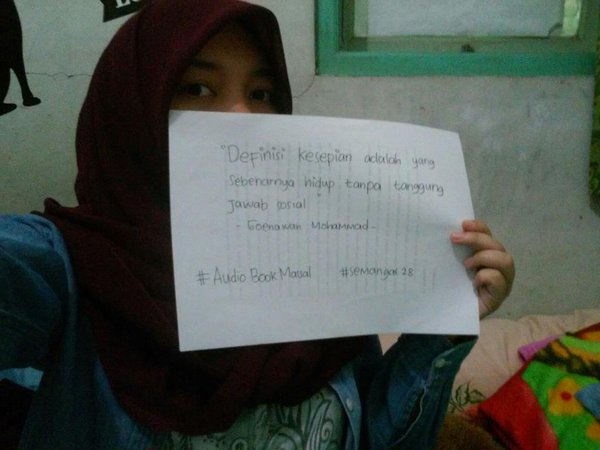 "Definisi kesepian adalah yang
sebenarnya hidup tanpa tanggung
jawab sosial"
- Goenawan Mohammad -
#Audio Book Massal #semangat 28